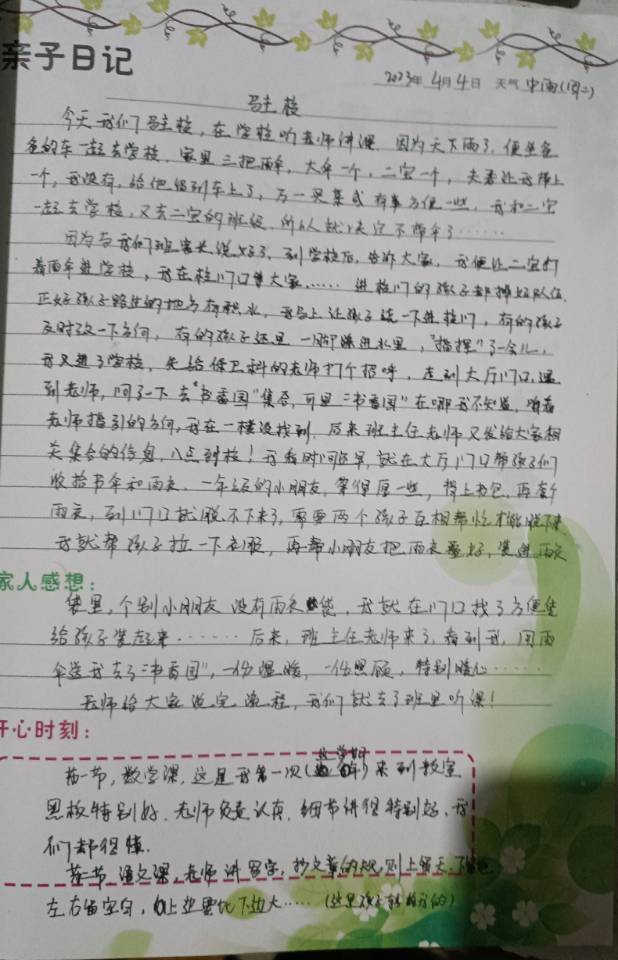 亲子日记
2023年4月4日 天气 中雨(周二)
驻校
今天我们驻校，在学校听老师讲课，因为天下雨了，便坐爸
爸的车一起去学校，家里三把雨伞，大伞一个，二宝一个，夫妻让我带上
一个，我没有，给他留到车上了，万一买集或有事方便一些，我和二宝
一起去学校，又去二宝的班级，所以就决定不带伞了……
因为与我们班家长说好了，到学校后，告诉大家，我便让二宝打
着雨伞进学校，我在校门口等大家……进校门的孩子都排好队伍，
正好孩子路过的地方有积水，我马上让孩子绕一下进校门，有的孩子
及时改一下方向，有的孩子还是一脚踩进水里，"指挥"了一会儿，
我又进了学校，先给保卫科的老师打个招呼，走到大厅门口，遇
到老师，问了一下去"书香园"集合，可是"书香园"在哪我不知道，顺着
老师指引的方向，我在一楼没找到，后来班主任老师又发给大家相
关集合的信息，八点到校！我看时间还早，就在大厅门口帮孩子们
收拾书伞和雨衣，一年级的小朋友，穿得厚一些，背上书包，再套个
雨衣，到门口就脱不下来了，需要两个孩子互相帮忙才能脱下来
我就帮孩子拉一下衣服，再帮小朋友把雨衣叠好，装进雨衣
家人感想：
袋里，个别小朋友没有雨衣袋，我就在门口找了方便袋
给孩子装起来……后来，班主任老师来了，看到我，用雨
伞送我去了"书香园"，一份温暖，一份照顾，特别暖心……
老师给大家说完流程，我们就去了班里听课！
开心时刻：
第一节，数学课，这是我第一次(这学期)来到教室
黑板特别好，老师负责认真，细节讲得特别好，我
们都很懂。
第二节，语文课，老师讲写字，抄文章的规则上留天，下留地
左右留空白，上边要比下边大……(这是孩子转告我的)